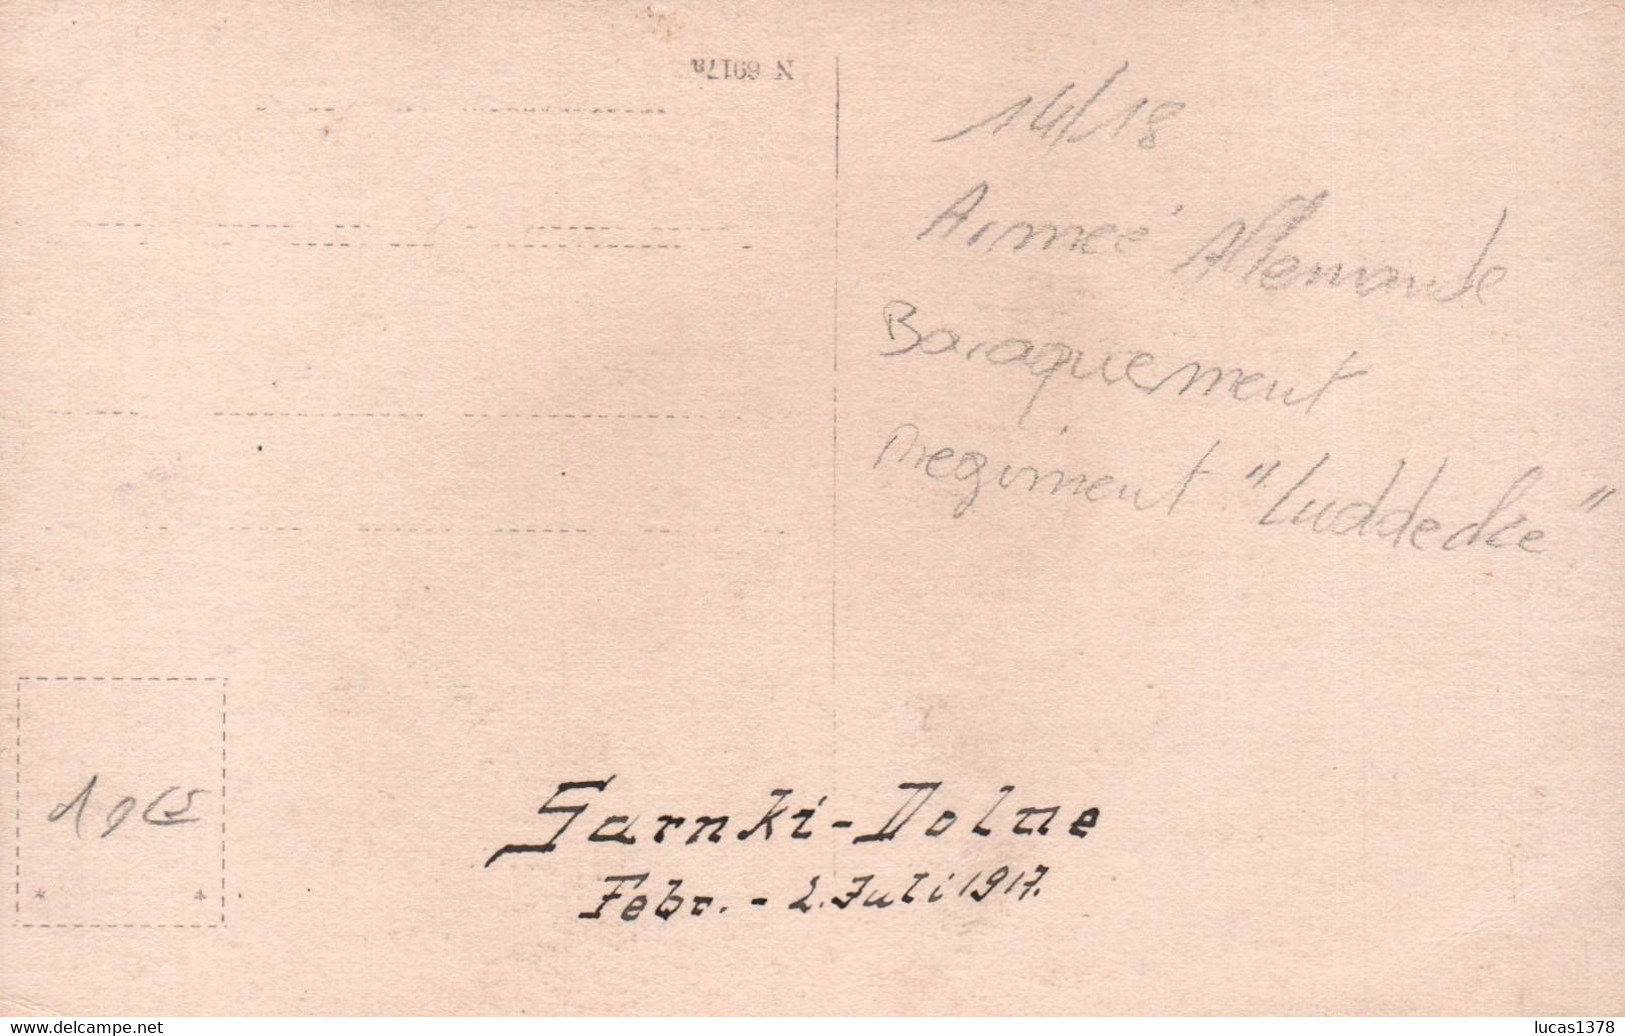 N 6917a
14/18
Armeé Allemande
Baraquement
regiment "Luddecke"
Sarnki-Dolne
Febr. - 2. Juli 1917.
www.delcampe.net
lucas1378